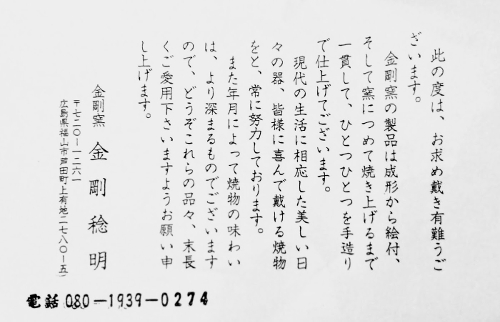 此の度は、お求め戴き有難うご
ざいます。
金剛窯の製品は成形から絵付、
そして窯につめて焼き上げるまで
一貫して、ひとつひとつを手造り
で仕上げてございます。
現代の生活に相応した美しい日
々の器、皆様に喜んで戴ける焼物
をと、常に努力しております。
また年月によって焼物の味わい
は、より深まるものでございます
ので、どうぞこれらの品々、末長
くご愛用下さいますようお願い申
し上げます。
金剛窯 金剛稔明
〒七二〇―一二六一
広島県福山市芦田町上有地二七八〇―五
電話 080-1939-0274